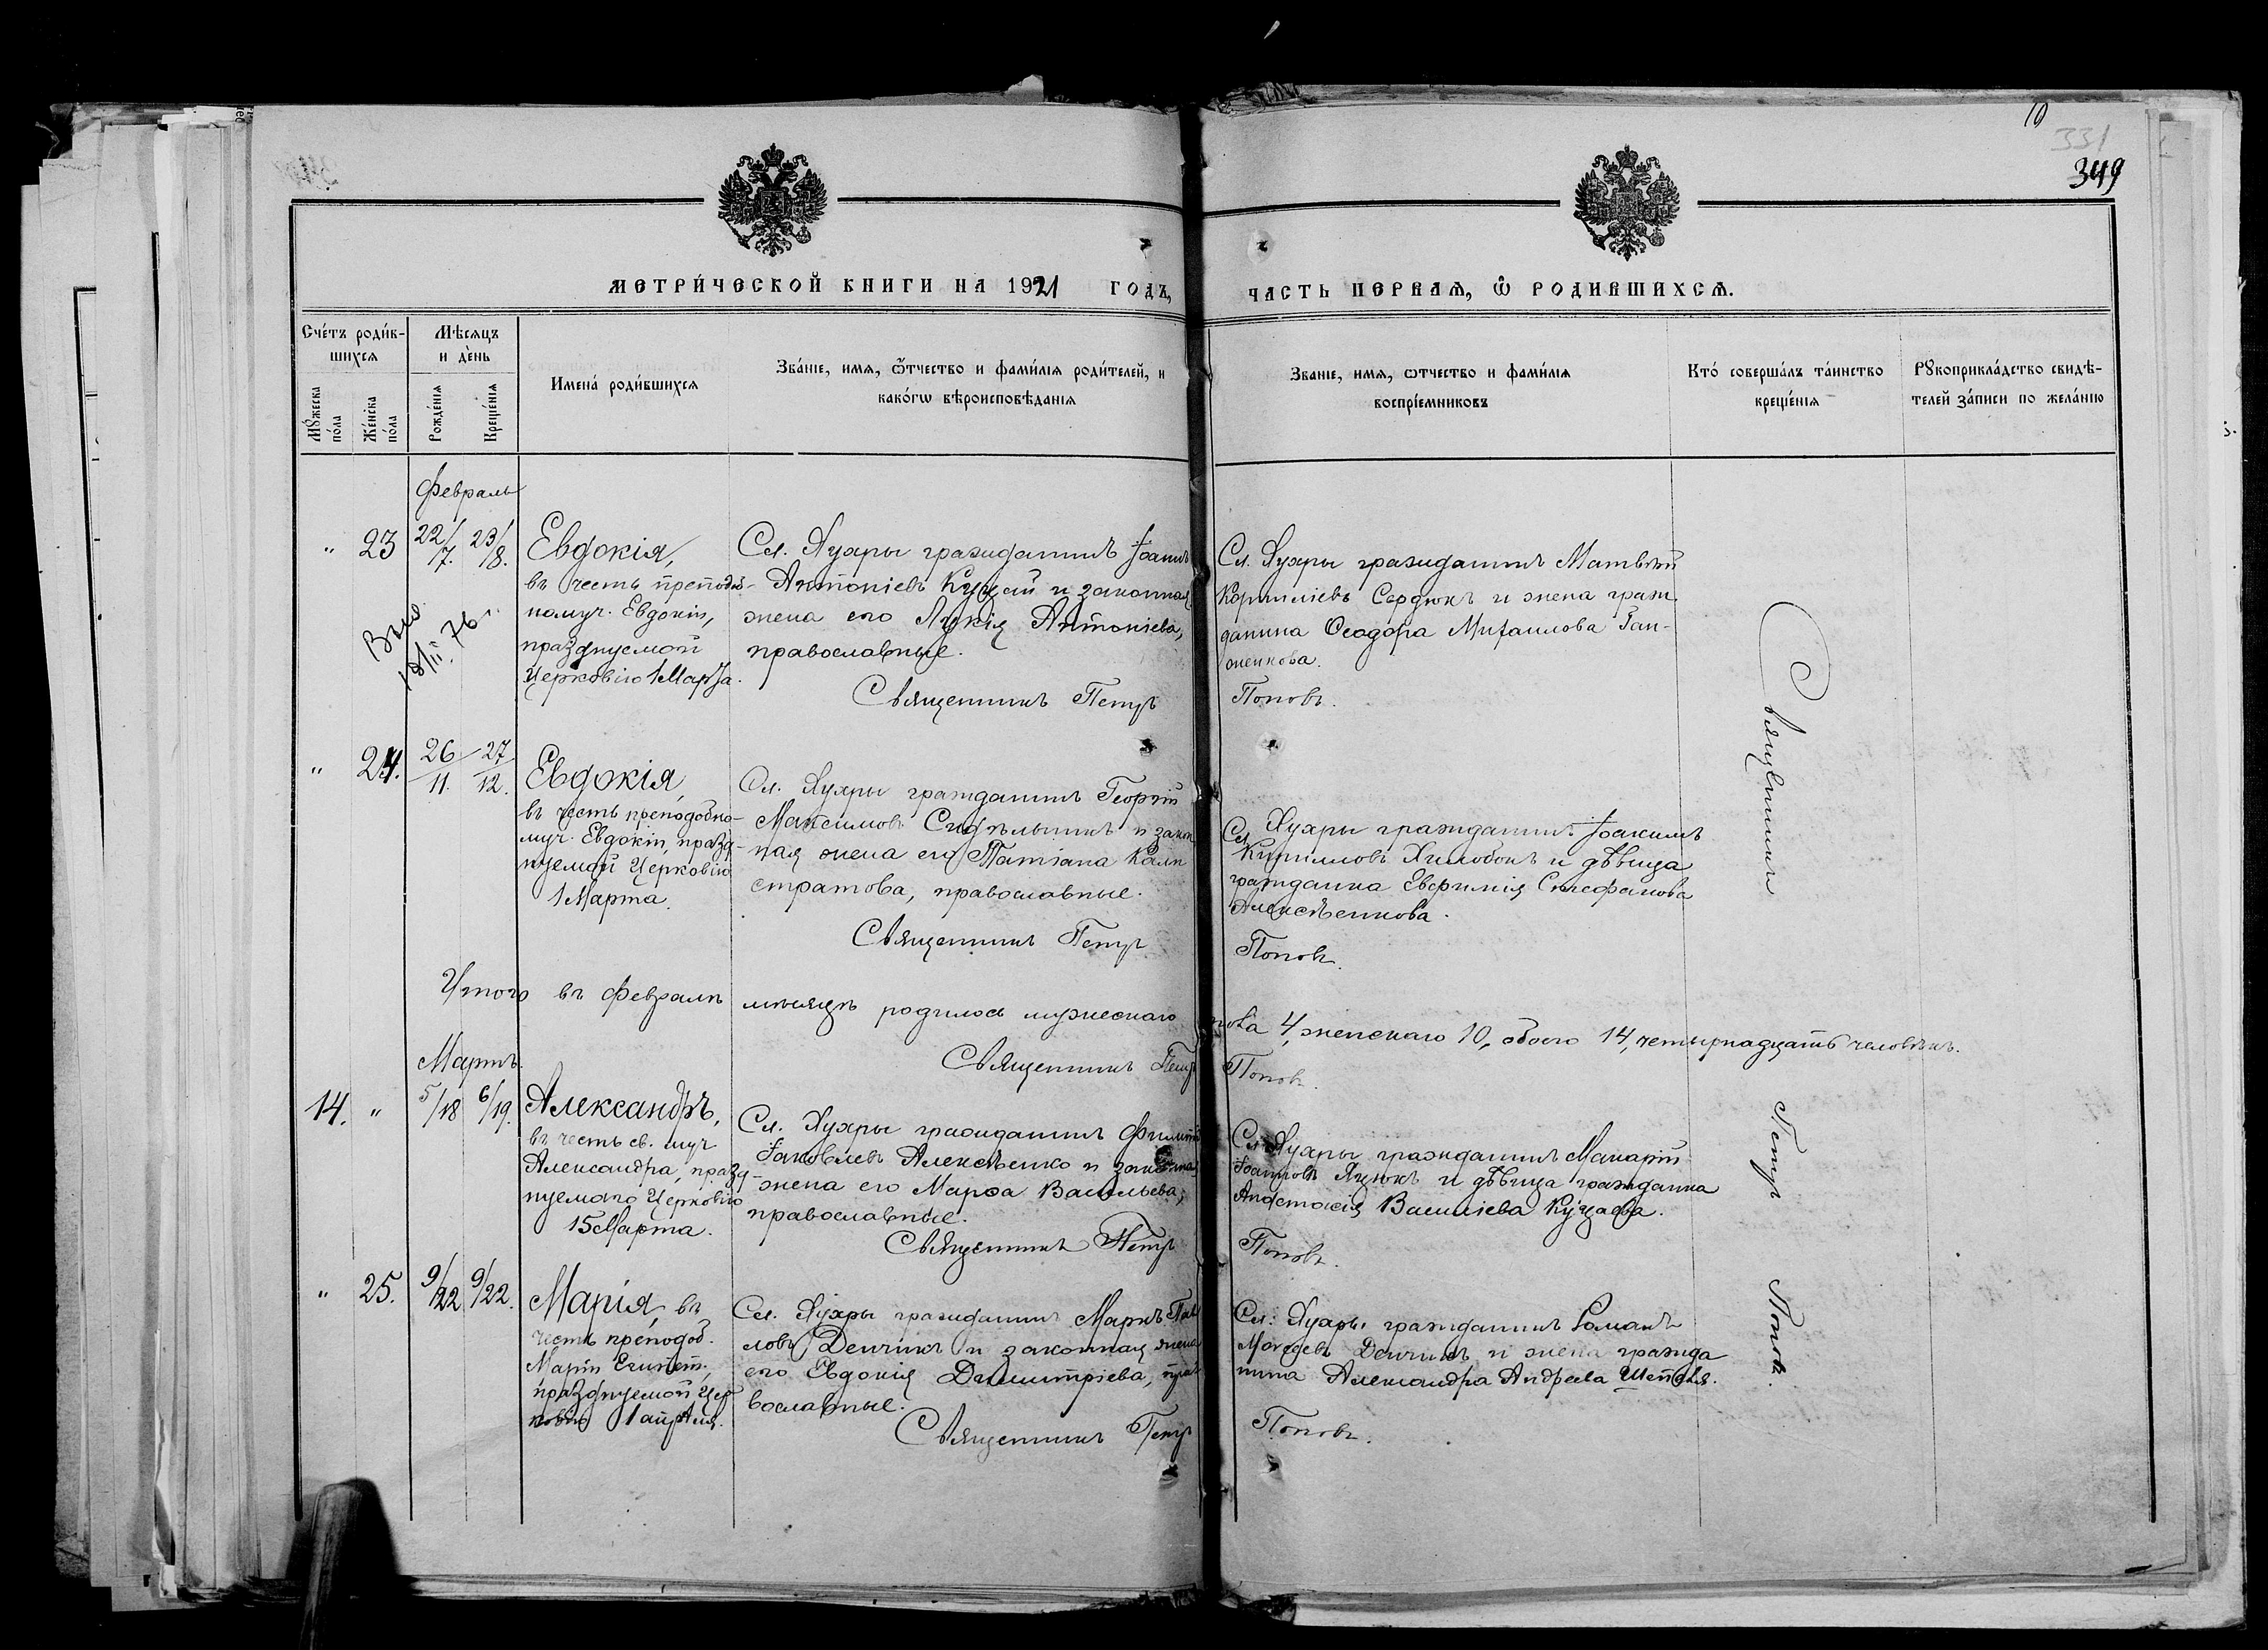 10
331
349
МЕТРИ́ЧЕСКОЙ КНИГИ НА 1921 ГОДЪ,
ЧАСТЬ ПЕРВАѦ, Ѽ РОДИВШИХСѦ.
Сче́тъ роди́в-
шихсѧ
Мꙋ́жеска по́ла
Же́нска по́ла
Мѣ́сѧцъ
и де́нь
Рожде́нїѧ
Креще́нїѧ
Имена́ роди́вшихсѧ
Зва́нїе, имѧ, ѻ҆тчество и фами́лїѧ роди́телей, и
како́гѡ вѣроисповѣ́данїѧ
Зва́нїе, имѧ, ѻтчество и фами́лїѧ
воспрїе́мниковъ
Кто́ соверша́лъ та́инство
креще́нїѧ
Рꙋкоприкла́дство свидѣ́-
телей за́писи по жела́нїю
Февраль
" 23 22/7. 23/8.
Евдокія,
въ честь преподоб-
номуч. Евдокіи,
празднуемой
Церковію 1 Марта.
18/II. 76 г.
Сл. Лухры гражданинъ Іоаннъ
Антоніевъ Куцай и законная
жена его Лукія Антоніева,
православные.
Священникъ Петръ
Сл. Лухры гражданинъ Матвѣй
Корниліевъ Сердюкъ и жена граж-
данина Ѳеодора Михаилова Ган-
женкова.
Поповъ.
" 24. 26/11. 27/12.
Евдокія
въ честь преподобно-
муч. Евдокіи, празд-
нуемой Церковію
1 Марта.
Сл. Лухры гражданинъ Георгій
Максимовъ Сидѣльникъ и закон
ная жена его Татіана Кали
стратова, православные.
Священникъ Петръ
Сл. Лухры гражданинъ Іоакимъ
Кирилловъ Хилобокъ и дѣвица
гражданка Евфимія Стефанова
Алексѣенкова.
Поповъ.
Итого въ Февралѣ мѣсяцѣ родилось мужескаго пола 4, женскаго 10, обоего 14, четырнадцать человѣкъ.
Священникъ Петръ Поповъ.
Мартъ.
14. " 5/18 6/19.
Александръ,
въ честь св. муч.
Александра, празд-
нуемаго Церковію
15 Марта.
Сл. Лухры гражданинъ Филиппъ
Іаковлевъ Алексѣенко и законная
жена его Марѳа Васильева,
православные.
Священникъ Петръ
Сл. Лухры гражданинъ Макарій
Іоанновъ Яцюкъ и дѣвица гражданка
Анастасія Василіева Куцаева.
Поповъ.
" 25. 9/22 9/22.
Марія, въ
честь преподоб.
Маріи Египет.,
празднуемой Цер
ковію 1 апрѣля.
Сл. Лухры гражданинъ Маркъ Пав
ловъ Денчикъ и законная жена
его Евдокія Димитріева, пра
вославные.
Священникъ Петръ
Сл. Лухры гражданинъ Романъ
Денчикъ и жена гражда
нина Александра Андреева
Поповъ.
Священникъ
Петръ
Поповъ.